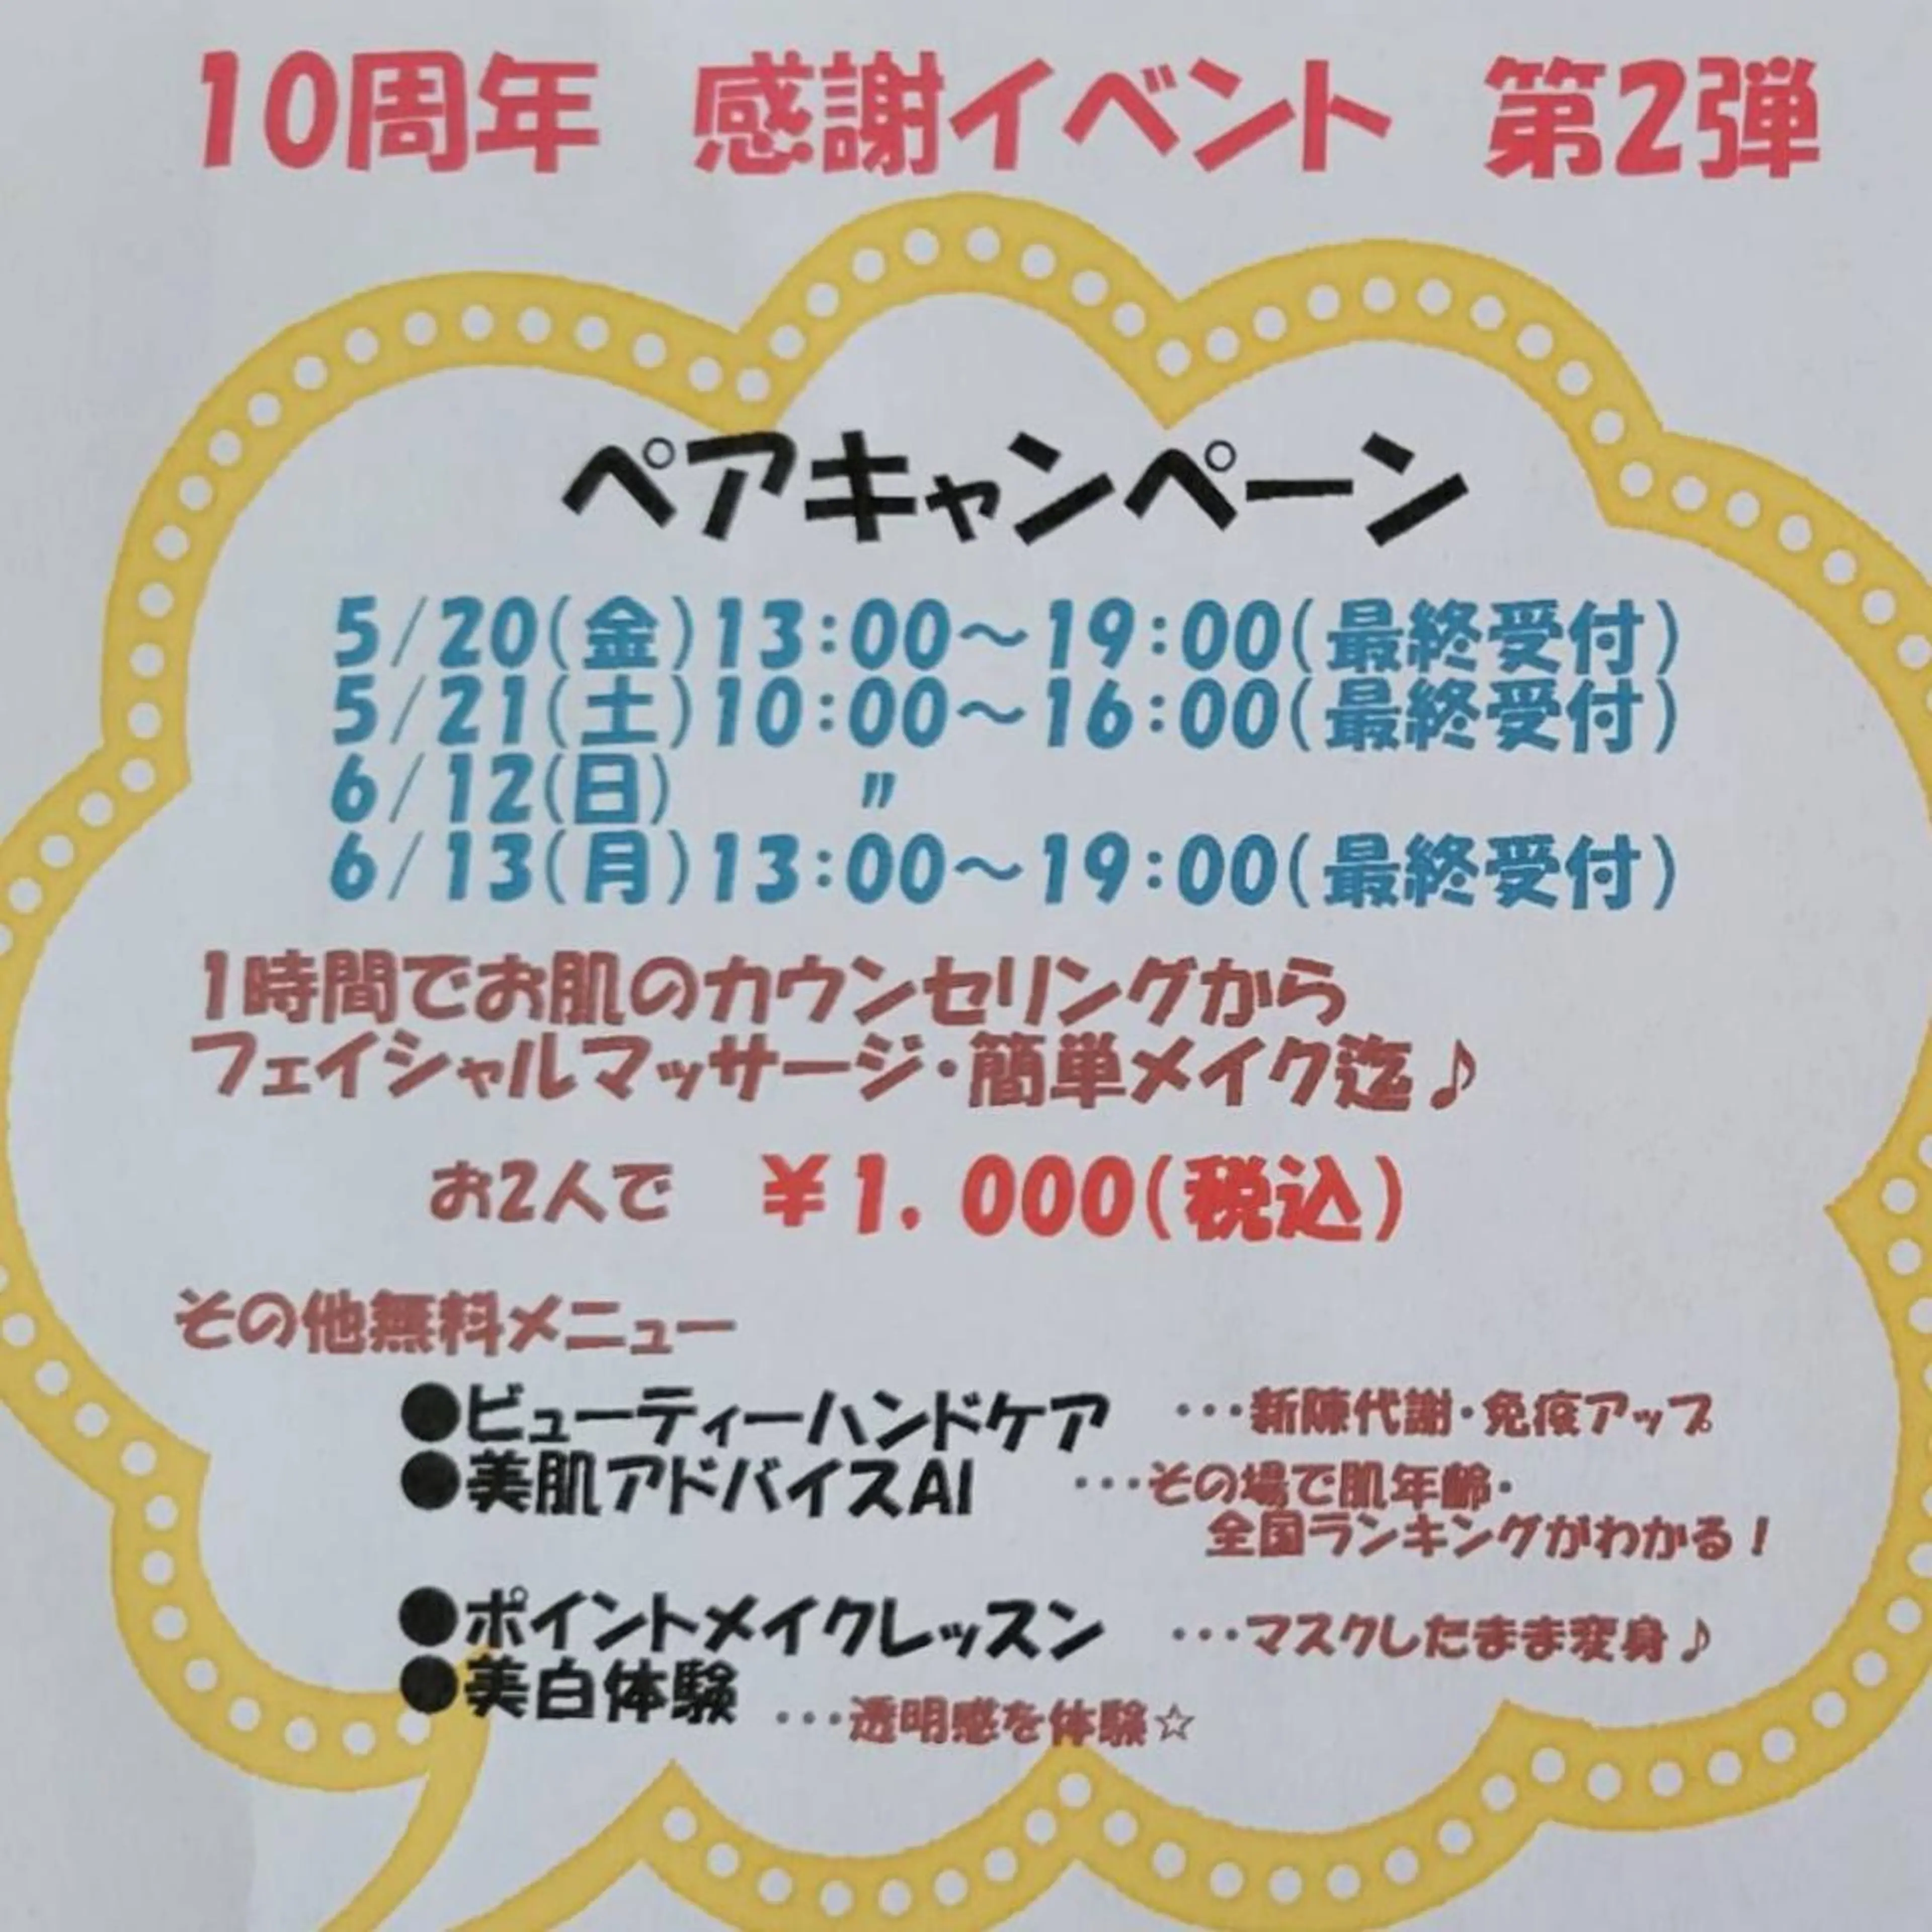 10周年 感謝イベント 第2弾
ペアキャンペーン
5/20(金)13:00～19:00(最終受付)
5/21(土)10:00～16:00(最終受付)
6/12(日) 〃
6/13(月)13:00～19:00(最終受付)
1時間でお肌のカウンセリングから
フェイシャルマッサージ・簡単メイク迄♪
お2人で ￥1,000(税込)
その他無料メニュー
●ビューティーハンドケア …新陳代謝・免疫アップ
●美肌アドバイスAI …その場で肌年齢・
全国ランキングがわかる！
●ポイントメイクレッスン …マスクしたまま変身♪
●美白体験 …透明感を体験☆